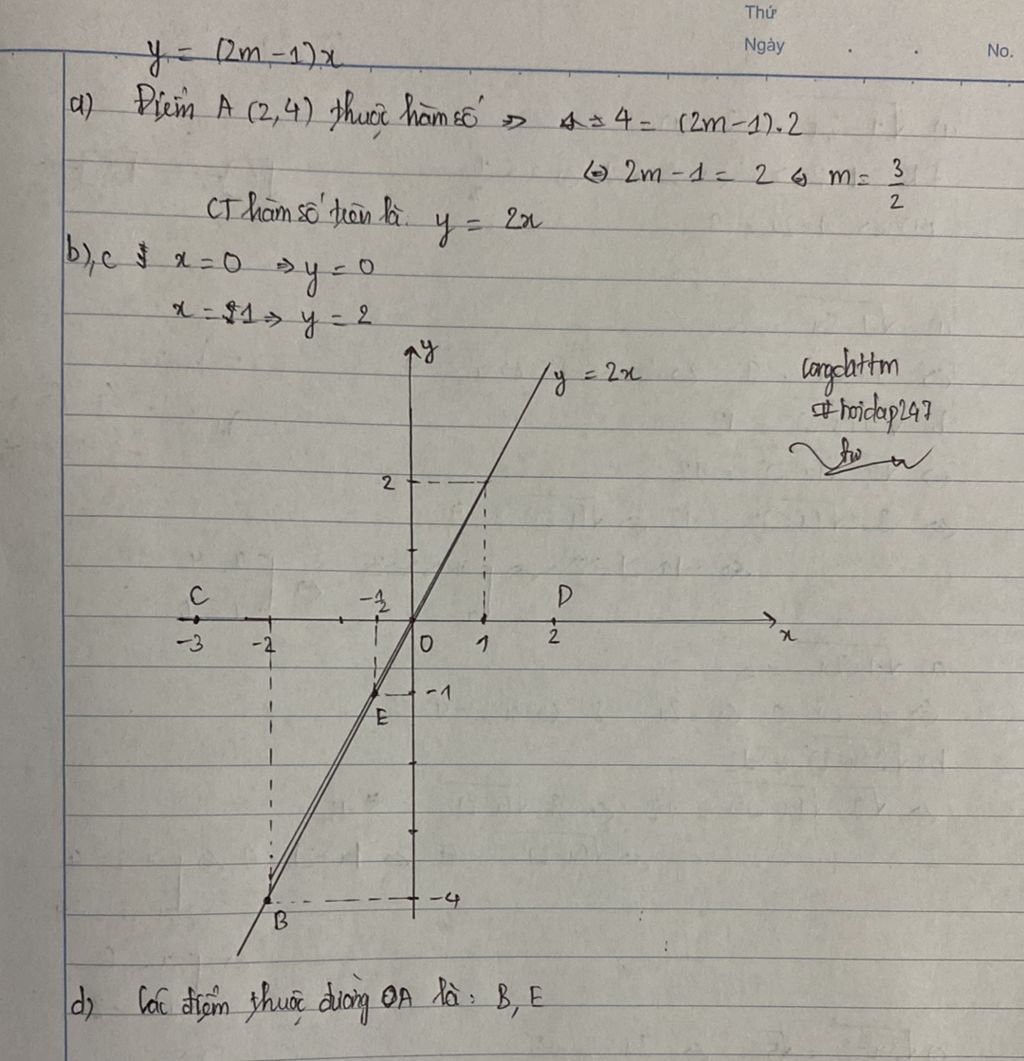 Thứ
Ngày . . No.
y = (2m - 1)x
a) Điểm A (2,4) thuộc hàm số => 4 = (2m-1).2
<=> 2m - 1 = 2 <=> m = 3/2
CT hàm số trên là: y = 2x
b),c x = 0 => y = 0
x = 1 => y = 2
y
y = 2x
congdattm
#hoidap247
2
C -1/2 D
-3 -2 0 1 2 x
-1
E
-4
B
d) Các điểm thuộc đường OA là: B, E